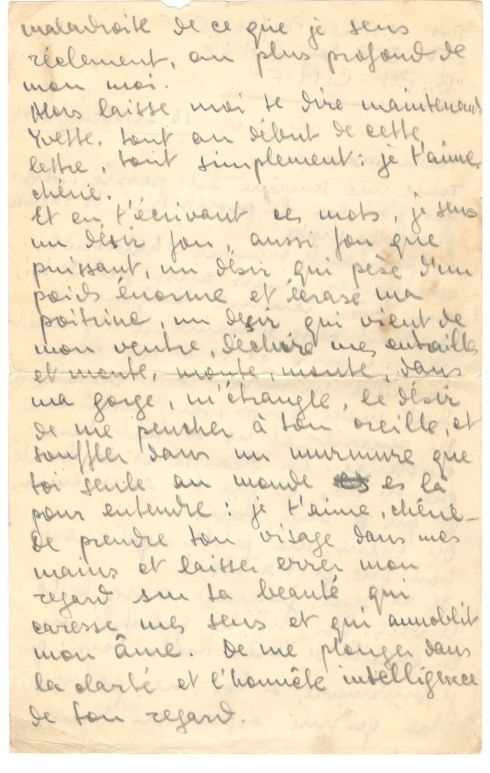 maladroite de ce que je sens
réelement, au plus profond de
mon moi.
Alors laisse moi te dire maintenant
Yvette, tout au début de cette
lettre, tout simplement: je t'aime,
chérie.
Et en t'écrivant ces mots, je sens
un désir fou, aussi fou que
puissant, un désir qui pèse d'un
poids énorme et écrase ma
poitrine, un desir qui vient de
mon ventre, déchire mes entrailles
et monte, monte, monte, dans
ma gorge, m'étrangle, le désir
de me pencher à ton oreille, et
souffler dans un murmure que
toi seule au monde es là
pour entendre: je t'aime, chérie-
De prendre ton visage dans mes
mains et laisser errer mon
regard sur ta beauté qui
caresse mes sens et qui annoblit
mon âme. De me plonger dans
la clarté et l'honnête intelligence
de ton regard.